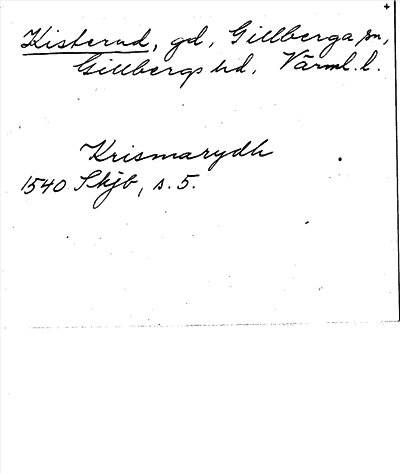 +
Kisterud, gd, Gillberga sn,
Gillbergs hd, Värml. l.
Krismarydh
1540 Skjb, s. 5.